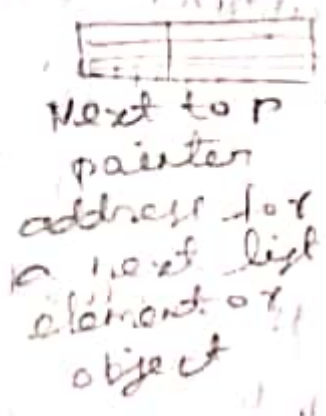 Next top
pointer
address for
a next list
element or
object